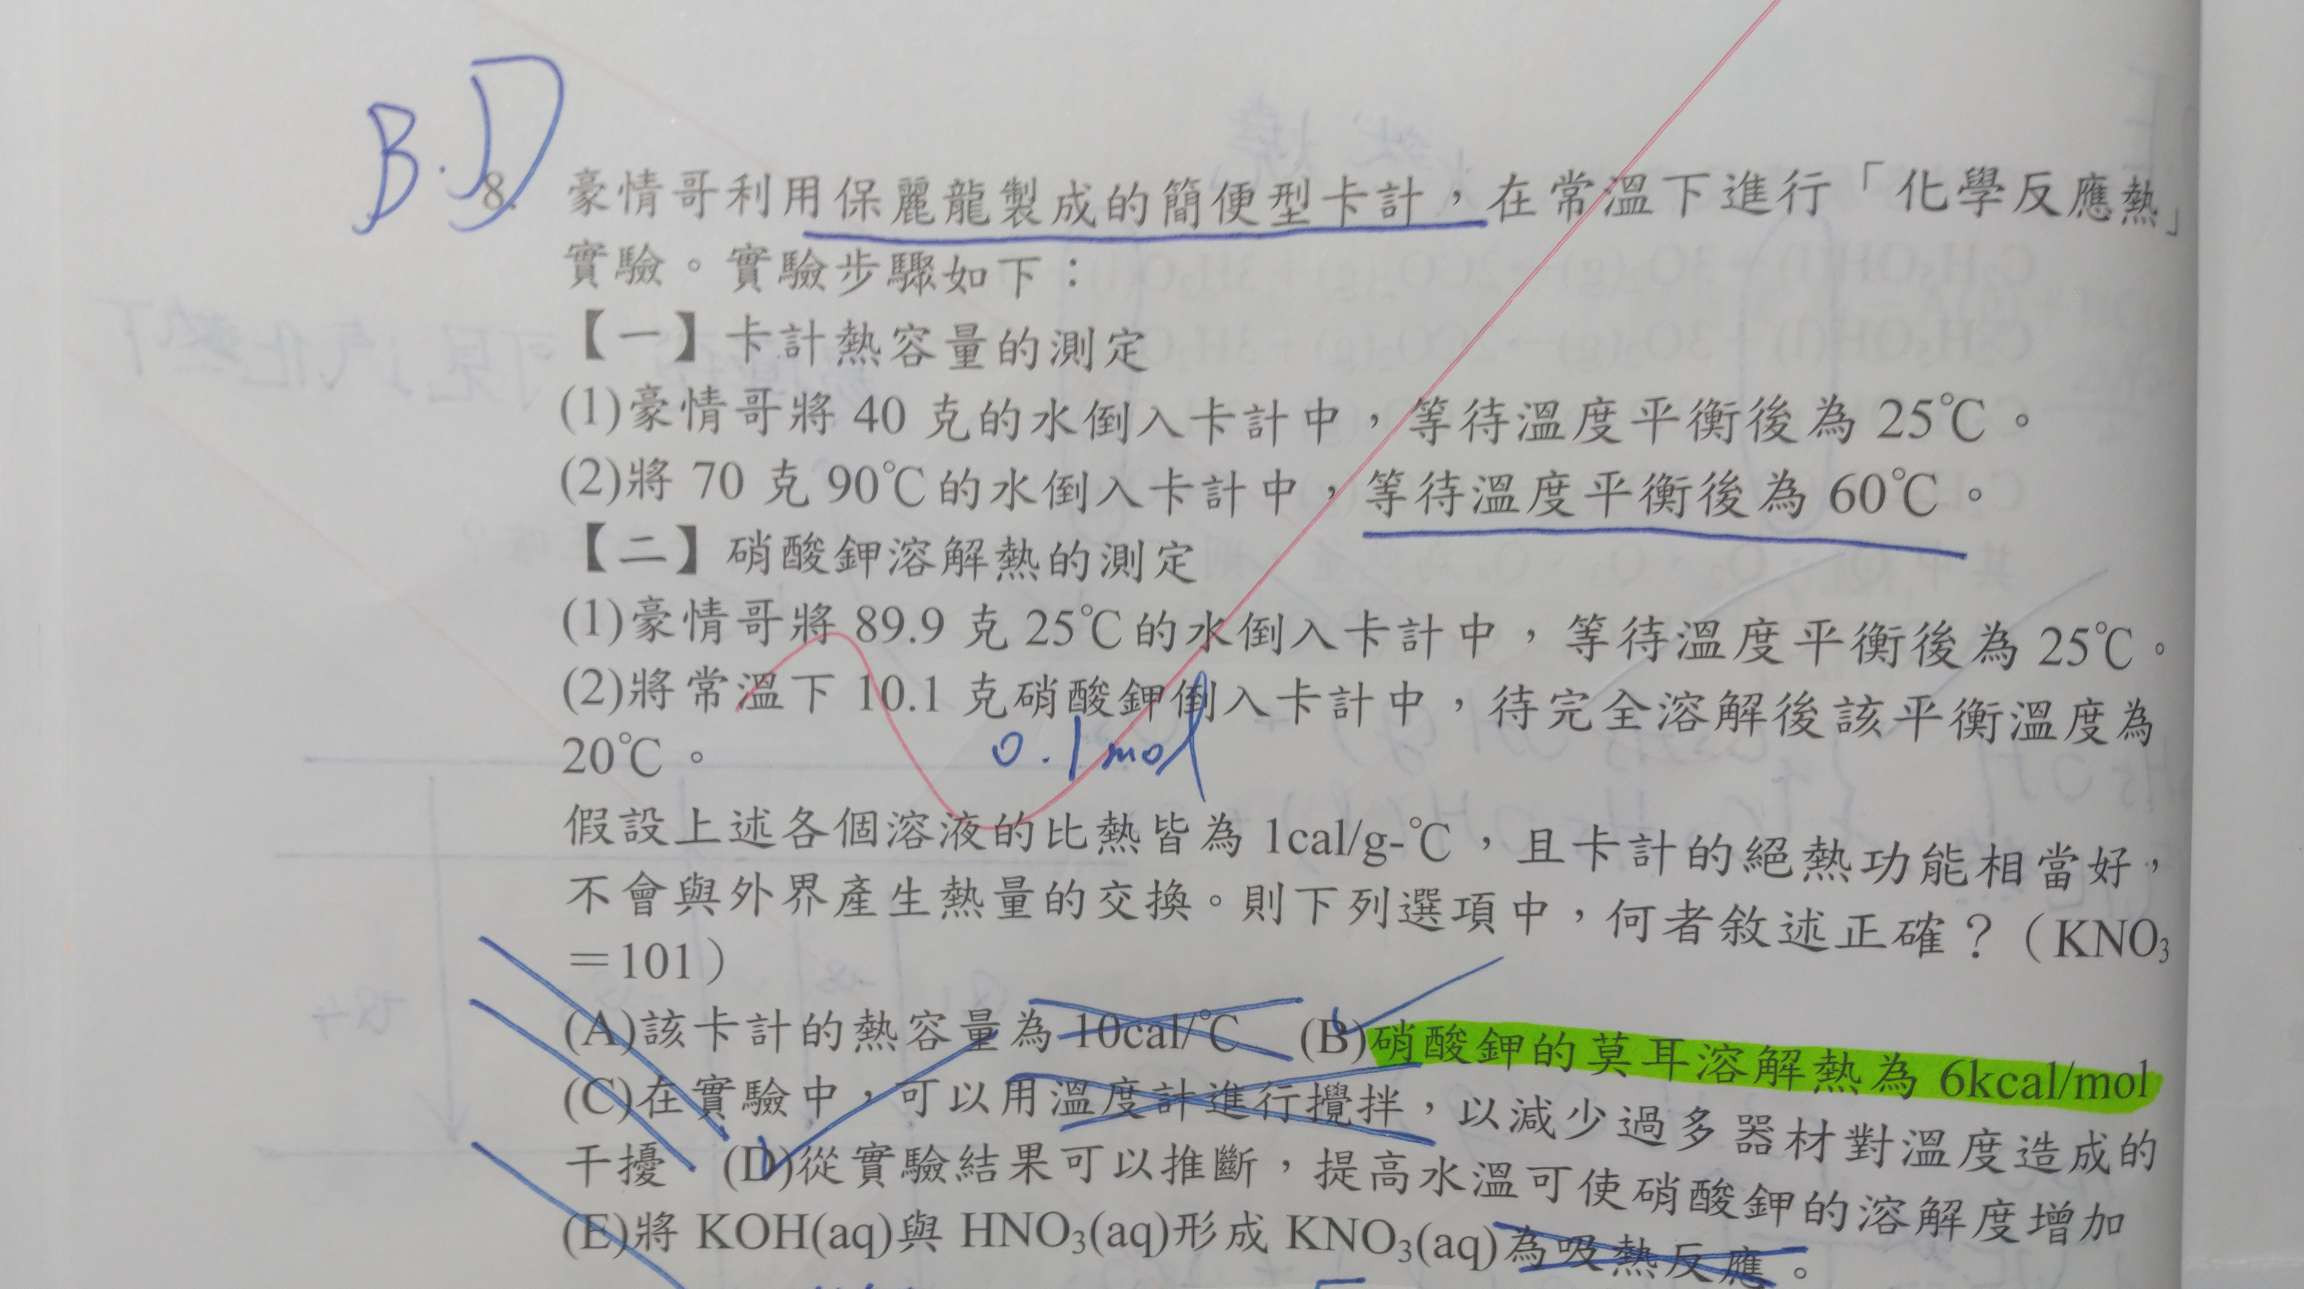 B.D
8. 豪情哥利用保麗龍製成的簡便型卡計，在常溫下進行「化學反應熱」
實驗。實驗步驟如下：
【一】卡計熱容量的測定
(1)豪情哥將 40 克的水倒入卡計中，等待溫度平衡後為 25℃。
(2)將 70 克 90℃的水倒入卡計中，等待溫度平衡後為 60℃。
【二】硝酸鉀溶解熱的測定
(1)豪情哥將 89.9 克 25℃的水倒入卡計中，等待溫度平衡後為 25℃。
(2)將常溫下 10.1 克硝酸鉀倒入卡計中，待完全溶解後該平衡溫度為
0.1mol
20℃。
假設上述各個溶液的比熱皆為 1cal/g-℃，且卡計的絕熱功能相當好，
不會與外界產生熱量的交換。則下列選項中，何者敘述正確？（KNO₃
＝101）
(A)該卡計的熱容量為 10cal/℃ (B)硝酸鉀的莫耳溶解熱為 6kcal/mol
(C)在實驗中，可以用溫度計進行攪拌，以減少過多器材對溫度造成的
干擾 (D)從實驗結果可以推斷，提高水溫可使硝酸鉀的溶解度增加
(E)將 KOH(aq)與 HNO₃(aq)形成 KNO₃(aq)為吸熱反應。